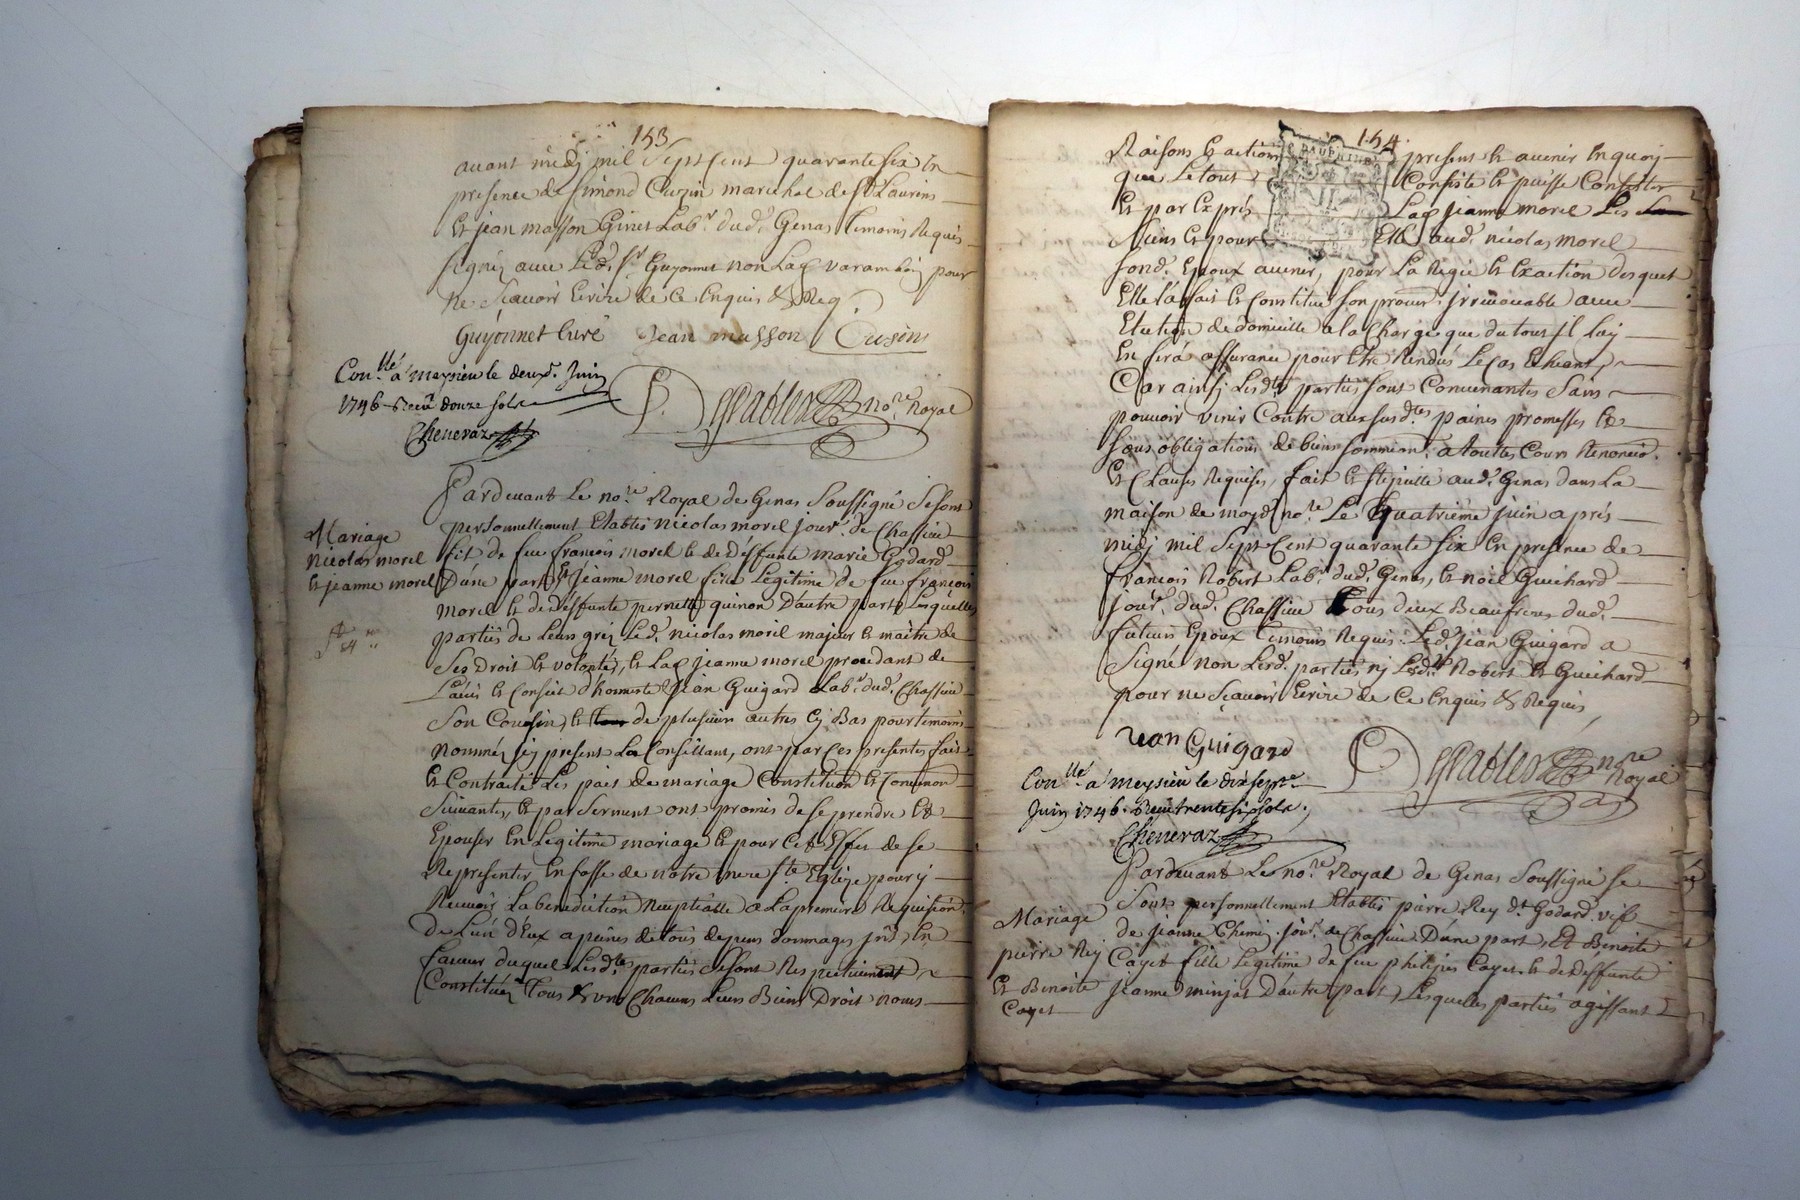 153
avant midj mil Sept Cent quarante six En
presence de Simond Cuzin marechal de St Laurens
Et jean masson Ginet Labr. dud. Genas Temoins Requis
signéz avec Led. Sr. Guyonnet non Lad varambon pour
ne Sçavoir Ecrire de Ce Enquis & Req
Guyonnet Curé Jean masson Cusin
Conllé a meysieu le deuxe. Juin
1746 Receu douze sols
Cheneraz nore Royal
Pardevant Le nore. Royal de Genas Soussigné Se sont
personnellement Etablis nicolas morel jourr. de Chassieu
Mariage
nicolas morel
Et jeanne morel
fils de feu françois morel Et de Deffunte marie Godard
D'une part Et jeanne morel fille Legitime de feu françois
morel Et de Deffunte pernette quinon D'autre part Lesquelles
parties de Leurs gréz Led. nicolas morel majeur Et maitre de
Ses Droit Et volontés, Et Lad jeanne morel procedant de
L'avis Et Conseil d'honneste jean Guigard Labr. dud. Chassieu
Son Cousin, Et de plusieurs autres Cy Bas pour temoins
nomméz Cy present La Conseillant, ont par Ces presentes fait
Et Contracté Les pais de mariage Constitution Et Convenon
Suivantes, Et par Serment ont promis de Se prendre Et
Epouser En Legitime mariage Et pour Cet Effet de Se
Representer En fasse de notre mere Ste Eglize pour y
Recevoir La benediction Nuptialle a La premiere Requision
De L'un d'Eux a peines de tous depens dommages jnts. En
faveur duquel Lesdtes parties se sont Respectivement
Constituéz Tous & uns Chacuns Leurs Biens Droit noms
154
Raisons Et actions present Et avenir En quoy
que Le tout Consiste Et puisse Consister
Et par Exprés Lad jeanne morel Les
Siens Et pour Elle aud. nicolas morel
fond. Epoux avenir, pour La Regie Et Exaction desquels
Elle L'a fait Et Constitué Son procur. jrrevocable avec
Election de domicille a la Charge que du tout jl Luy
En fera assurance pour Etre Rendus Le Cas Echeant,
Car ainsi Lesdtes parties Sont Convenantes Sans
pouvoir venir Contre aux susdtes paines promesses Et
Sous obligations de biens Sommissn. a toutes Cours Renonciaõ.
Et Clauses Requises, fait Et Stipullé aud. Genas dans La
maison de moyd. nore. Le quatriéme juin aprés
midj mil Sept Cent quarante six En presence de
françois Robert Labr. dud. Genas, Et noël Guichard
jourr. dud. Chassieu Tous deux Beaufreres dud.
futeurs Epoux Temoins Requis. Led. jean Guigard a
Signé non Lesd. parties nj Lesdts Robert Et Guichard
pour ne Sçavoir Ecrire de Ce Enquis & Requis
Jean Guigard nore Royal
Conllé a meysieu le dix sept
Juin 1746. Receu trente six sols.
Cheneraz
Pardevant Le nore Royal de Genas Soussigné Se
Sont personnellement Etablis pierre Rey dt. Godard. vif
Mariage
pierre Rey
Et Benoite
Cayet
de jeanne Chemin. jourr. de Chassieu D'une part, Et Benoite
Cayet fille Legitime de feu philipes Cayet Et de Deffunte
jeanne minjat D'autre part, Lesquelles parties agissant